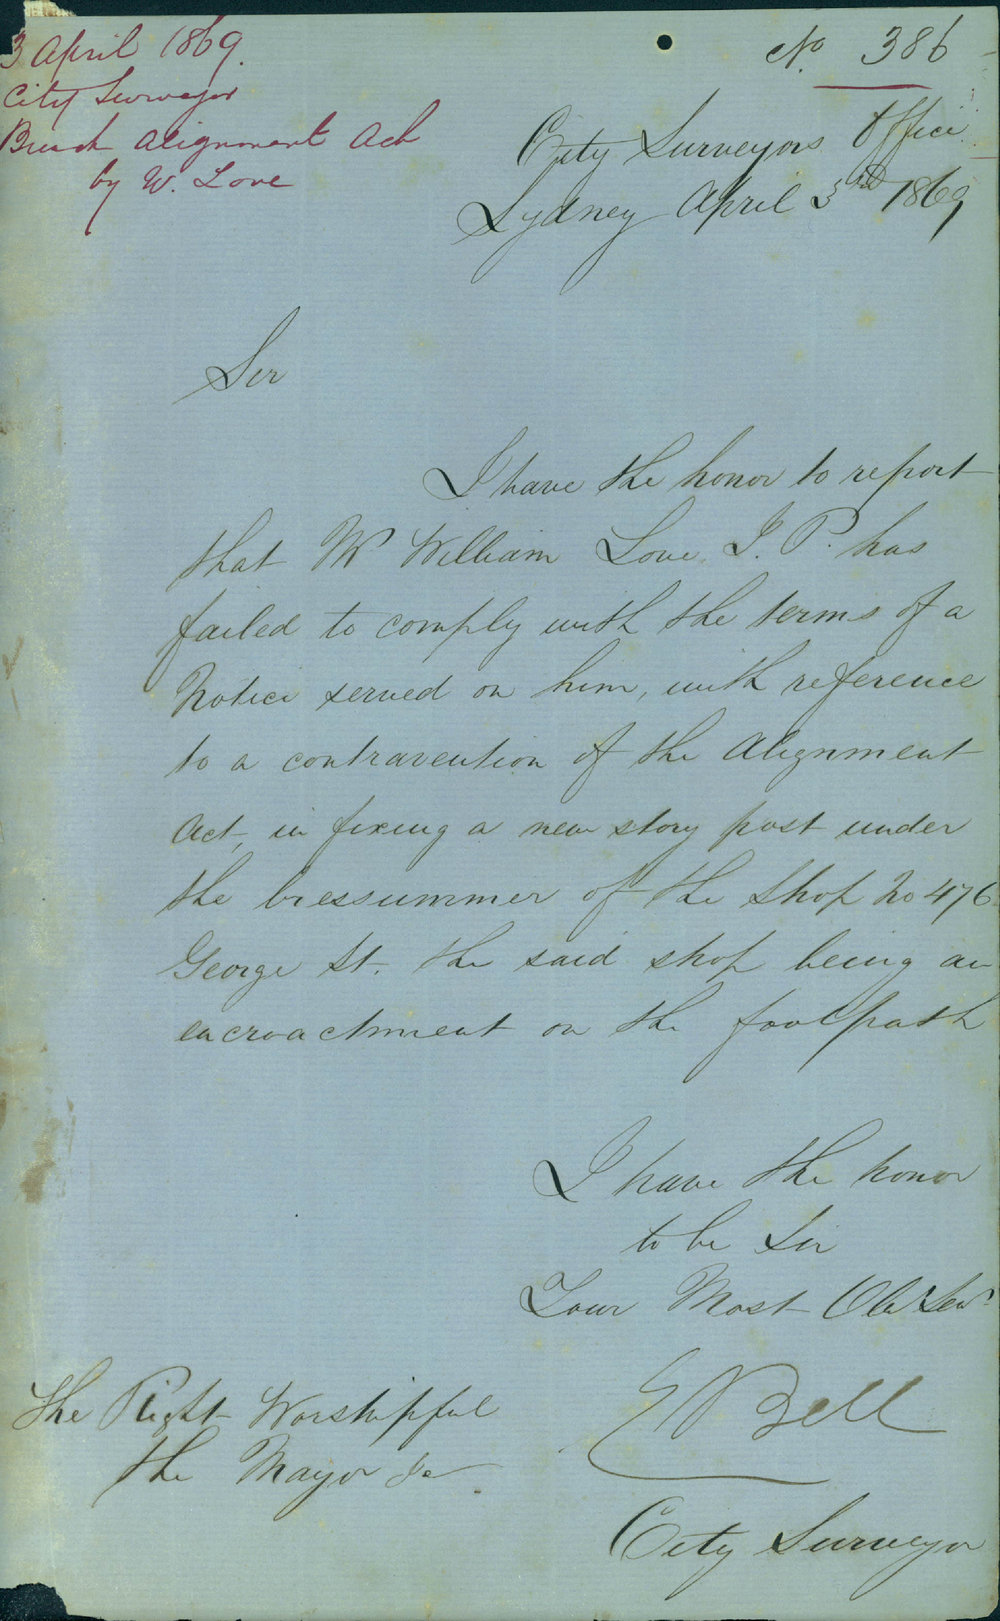 3 April 1869.
City Surveyor
Breach Alignment Act
by W. Love
No 386
City Surveyors Office
Sydney April 3rd 1869
Sir
I have the honor to report
that Mr William Love J. P. has
failed to comply with the terms of a
Notice served on him, with reference
to a contravention of the Alignment
Act, in fixing a new story post under
the bressummer of the Shop No 476
George St. the said shop being an
encroachment on the footpath
I have the honor
to be Sir
Your Most Obt Servt
E Bell
City Surveyor
The Right Worshipful
the Mayor &c